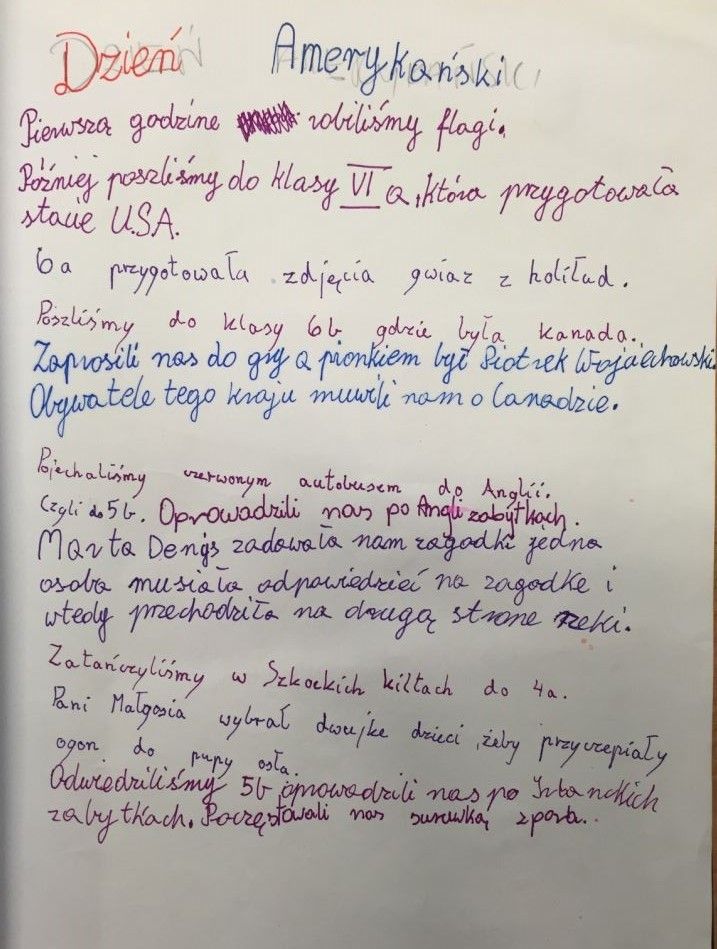 Dzień Amerykański
Pierwszą godzine robiliśmy flagi.
Później poszliśmy do klasy VI a, która przygotowała
stacie U.S.A.
6a przygotowała zdjęcia gwiaz z holiłud.
Poszliśmy do klasy 6b gdzie była kanada.
Zaprosili nas do gry a pionkiem był Piotrek Wojciechowski.
Obywatele tego kraju muwili nam o Canadzie.
Pojechaliśmy czerwonym autobusem do Anglii.
Czyli do 5b. Oprowadzili nas po Angli zabytkach.
Marta Denys zadawała nam zagadki jedna
osoba musiała odpowiedzieć na zagodke i
wtedy przechodziła na drugą strone rzeki.
Zatańczyliśmy w Szkockich kiltach do 4a.
Pani Małgosia wybrał dwujke dzieci, żeby przyczepiały
ogon do pupy osła.
Odwiedziliśmy 5b oprowadzili nas po Irlandzkich
zabytkach. Poczęstowali nas suruwką z pora..